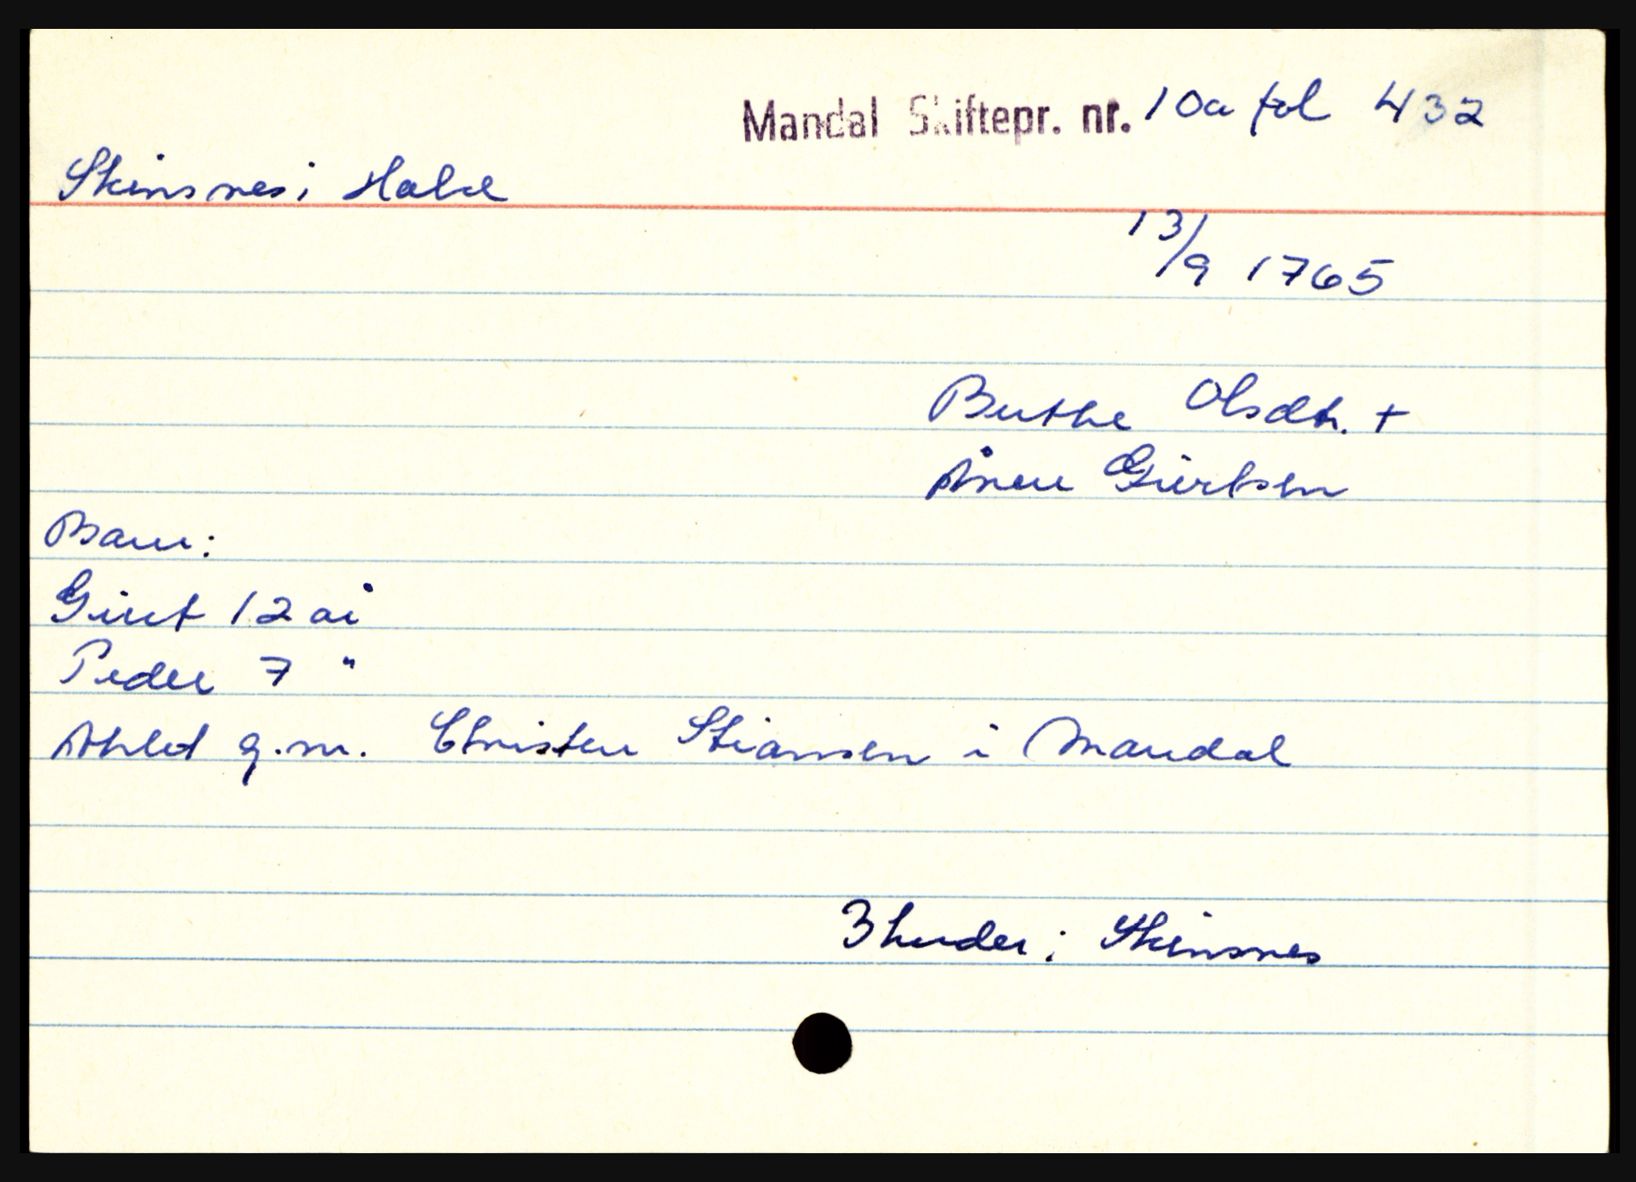 Mandal Skiftepr. nr. 10a fol 432
Skinsnes i Halse
13/9 1765
Berthe Olsdtr. +
Anen Giertsen
Barn:
Giert 12 år
Peder 7 "
Ahlet g.m. Christen Stiansen i Mandal
3 huder i Skinsnes